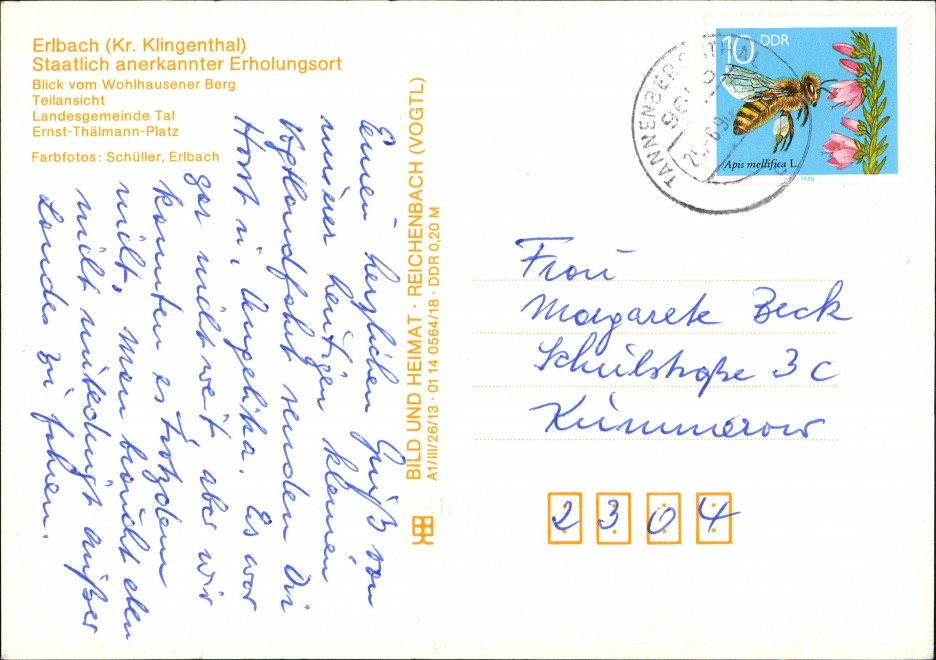 Erlbach (Kr. Klingenthal)
Staatlich anerkannter Erholungsort
Blick vom Wohlhausener Berg
Teilansicht
Landesgemeinde Tal
Ernst-Thälmann-Platz
Farbfotos: Schüller, Erlbach
Einen herzlichen Gruß von
unserer heutigen kleinen
Vogtlandfahrt senden Dir
Horst u. Angelika. Es war
gar nicht weit, aber wir
konnten es trotzdem
nicht. Man braucht eben
nicht unbedingt außer
Landes zu fahren.
BILD UND HEIMAT · REICHENBACH (VOGTL)
A1/III/26/13 · 01 14 0564/18 · DDR 0,20 M
10 DDR
Apis mellifica L.
1990
TANNENBERGSTHAL
Frau
Margarete Beck
Schulstraße 3c
Kummerow
2304